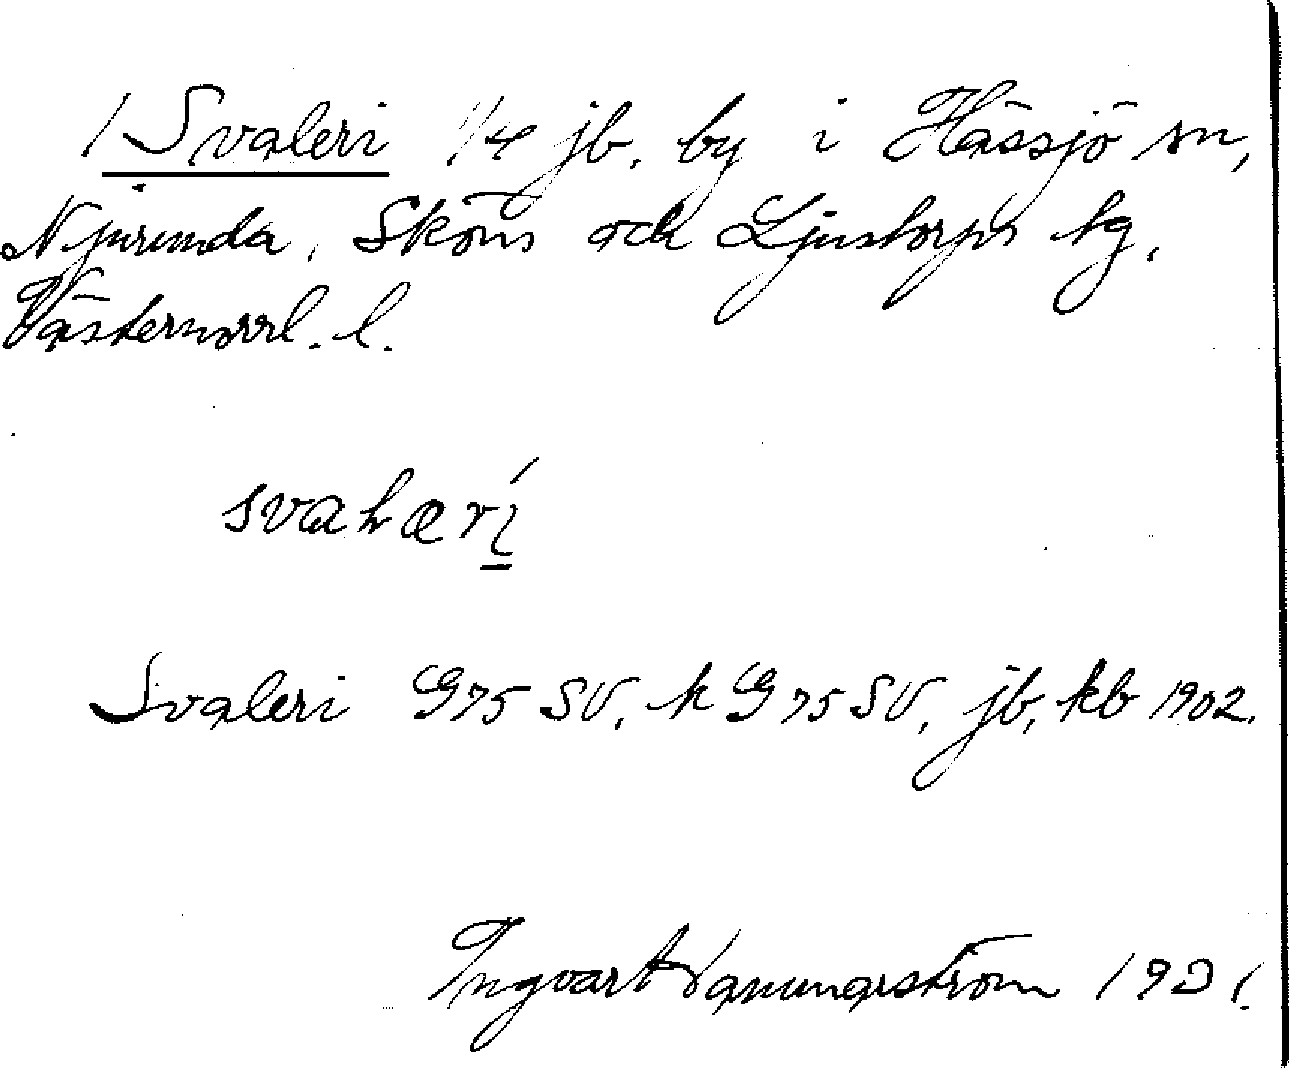 1 Svaleri 1/4 jb. by i Hässjö sn,
Njurunda, Sköns och Ljustorps tg,
Västernorrl. l.
svalæri
Svaleri G 75 SV, k G 75 SV, jb, kb 1902.
Ingvart 1931.